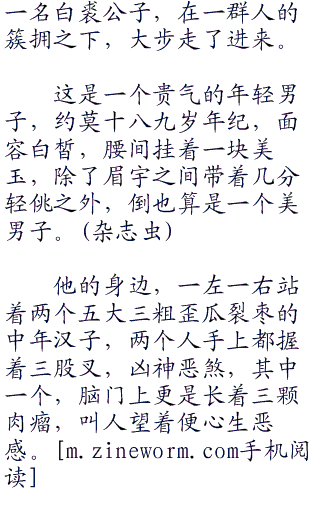 一名白裘公子，在一群人的
簇拥之下，大步走了进来。
这是一个贵气的年轻男
子，约莫十八九岁年纪，面
容白皙，腰间挂着一块美
玉，除了眉宇之间带着几分
轻佻之外，倒也算是一个美
男子。(杂志虫)
他的身边，一左一右站
着两个五大三粗歪瓜裂枣的
中年汉子，两个人手上都握
着三股叉，凶神恶煞，其中
一个，脑门上更是长着三颗
肉瘤，叫人望着便心生恶
感。[m.zineworm.com手机阅
读]